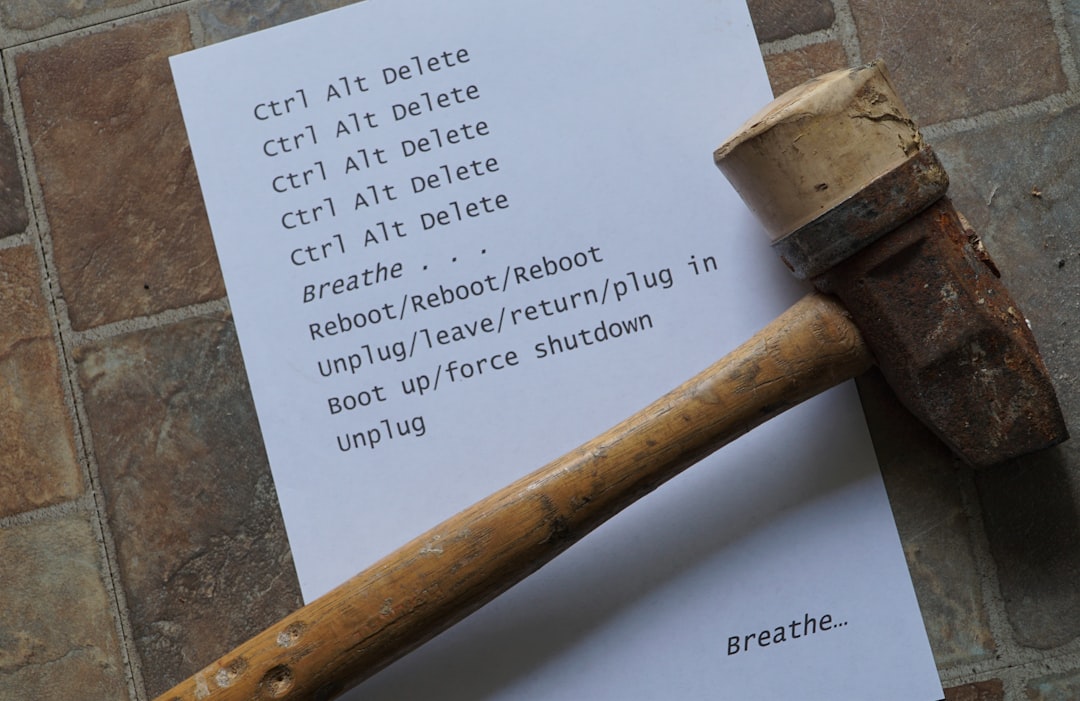 Ctrl Alt Delete
Ctrl Alt Delete
Ctrl Alt Delete
Ctrl Alt Delete
Ctrl Alt Delete
Breathe . . .
Reboot/Reboot/Reboot
Unplug/leave/return/plug in
Boot up/force shutdown
Unplug
Breathe…